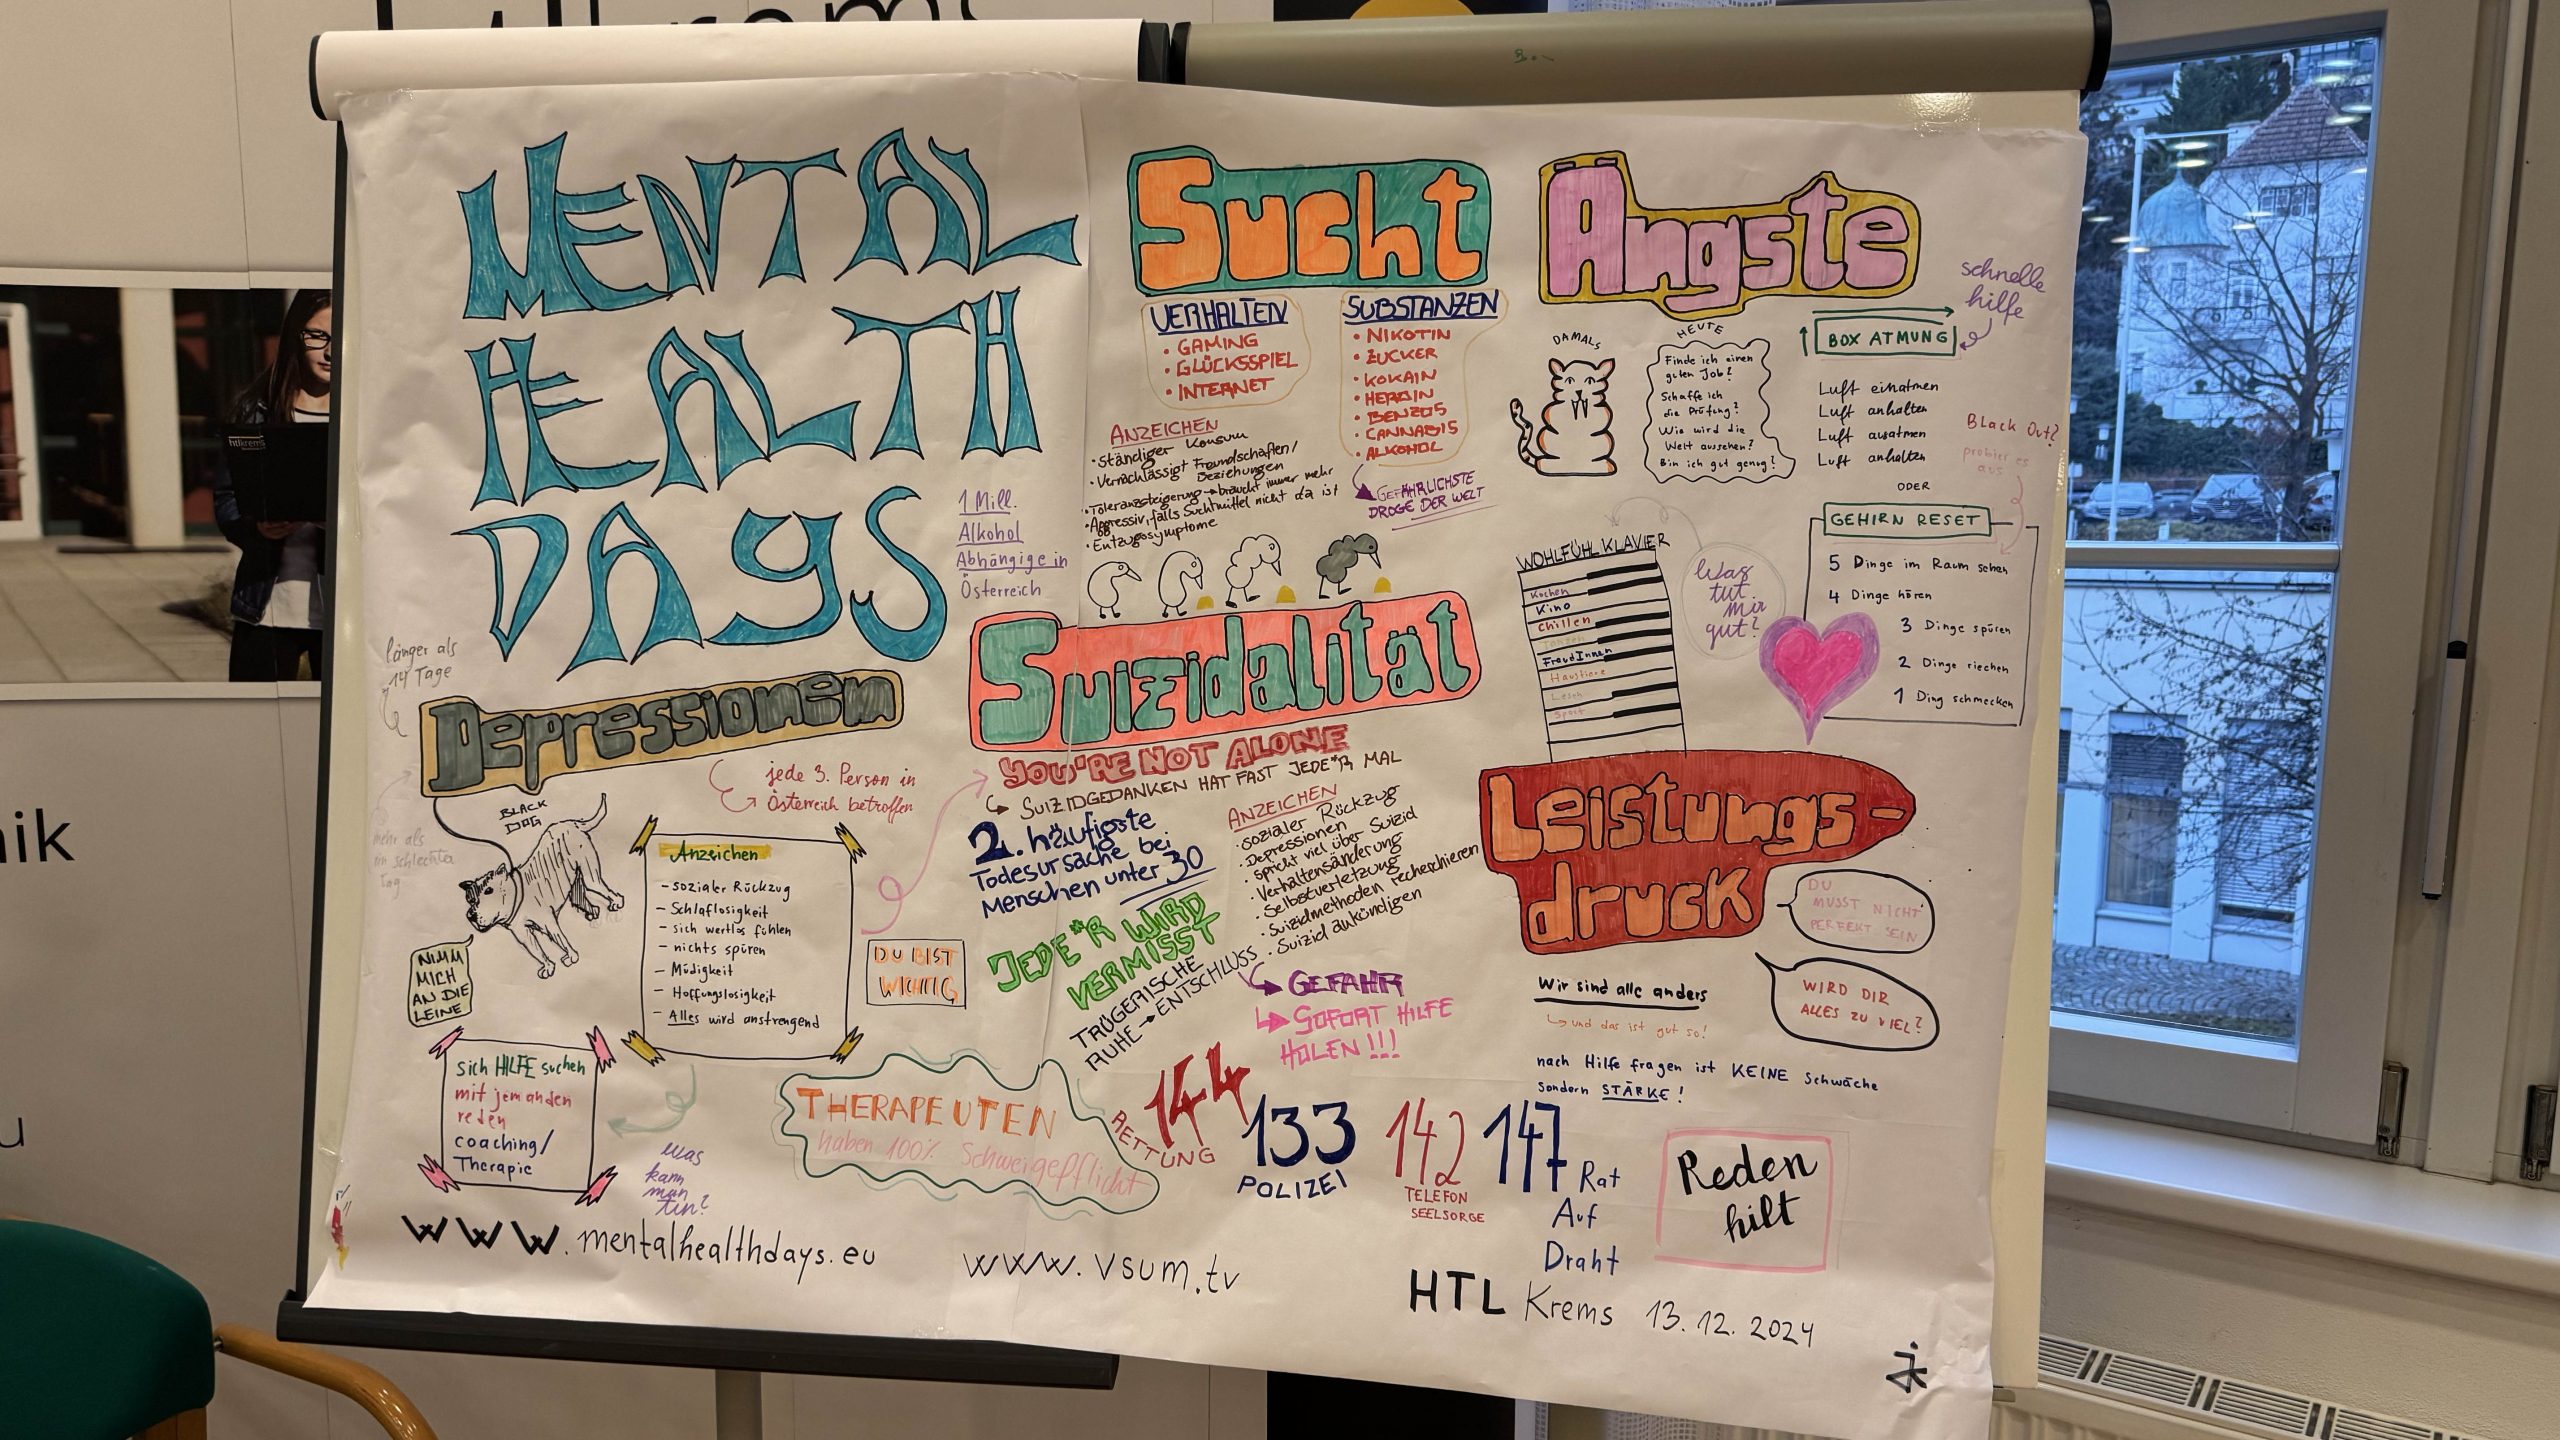 MENTAL
HEALTH
DAYS
1 Mill.
Alkohol
Abhängige in
Österreich
Sucht
VERHALTEN
• GAMING
• GLÜCKSSPIEL
• INTERNET
SUBSTANZEN
• NIKOTIN
• ZUCKER
• KOKAIN
• HEROIN
• BENZOS
• CANNABIS
• ALKOHOL
GEFÄHRLICHSTE
DROGE DER WELT
ANZEICHEN
• Ständiger Konsum
• Vernachlässigt Freundschaften/
Beziehungen
• Toleranzsteigerung → braucht immer mehr
• Aggressiv, falls Suchtmittel nicht da ist
• Entzugssymptome
Ängste
DAMALS
HEUTE
Finde ich einen
guten Job?
Schaffe ich
die Prüfung?
Wie wird die
Welt aussehen?
Bin ich gut genug?
schnelle
hilfe
BOX ATMUNG
Luft einatmen
Luft anhalten
Luft ausatmen
Luft anhalten
ODER
Black Out?
probier es
aus
GEHIRN RESET
5 Dinge im Raum sehen
4 Dinge hören
3 Dinge spüren
2 Dinge riechen
1 Ding schmecken
WOHLFÜHLKLAVIER
Kochen
Kino
Chillen
Tanzen
FreudInnen
Haustiere
Lesen
Sport
Was
tut
mir
gut?
länger als
14 Tage
Depressionen
jede 3. Person in
Österreich betroffen
mehr als
ein schlechter
Tag
BLACK
DOG
NIMM
MICH
AN DIE
LEINE
Anzeichen
- sozialer Rückzug
- Schlaflosigkeit
- sich wertlos fühlen
- nichts spüren
- Müdigkeit
- Hoffungslosigkeit
- Alles wird anstrengend
DU BIST
WICHTIG
sich HILFE suchen
mit jemanden
reden
coaching/
Therapie
was
kann
man
tun?
THERAPEUTEN
haben 100% Schweigepflicht
Suizidalität
YOU'RE NOT ALONE
SUIZIDGEDANKEN HAT FAST JEDE*R MAL
2. häufigste
Todesursache bei
Menschen unter 30
JEDE*R WIRD
VERMISST
TRÜGERISCHE
RUHE → ENTSCHLUSS
ANZEICHEN
• sozialer Rückzug
• Depressionen
• spricht viel über Suizid
• Verhaltensänderung
• Selbstverletzung
• Suizidmethoden recherschieren
• Suizid ankündigen
GEFAHR
SOFORT HILFE
HOLEN!!!
Leistungs-
druck
DU
MUSST NICHT
PERFEKT SEIN
WIRD DIR
ALLES ZU VIEL?
Wir sind alle anders
und das ist gut so!
nach Hilfe fragen ist KEINE Schwäche
sondern STÄRKE!
144
RETTUNG
133
POLIZEI
142
TELEFON
SEELSORGE
147 Rat
Auf
Draht
Reden
hilt
www.mentalhealthdays.eu
www.vsum.tv
HTL Krems 13.12.2024
htlkrems
nik